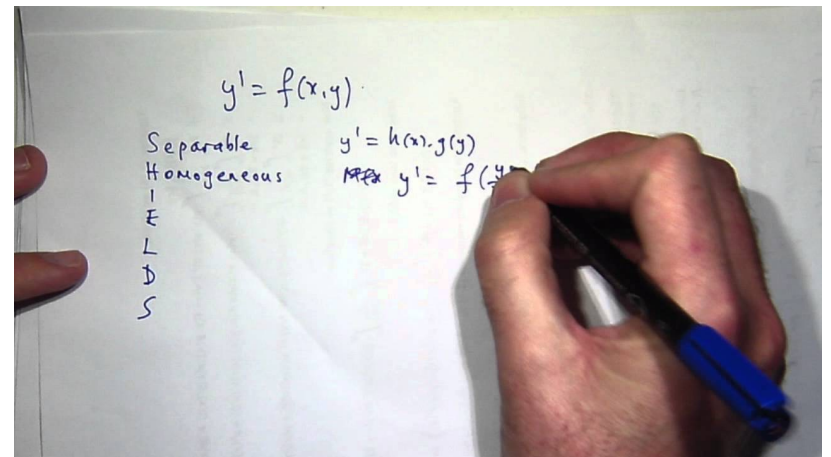 y' = f(x,y)
Separable y' = h(x).g(y)
Homogeneous y' = f(y
I
E
L
D
S